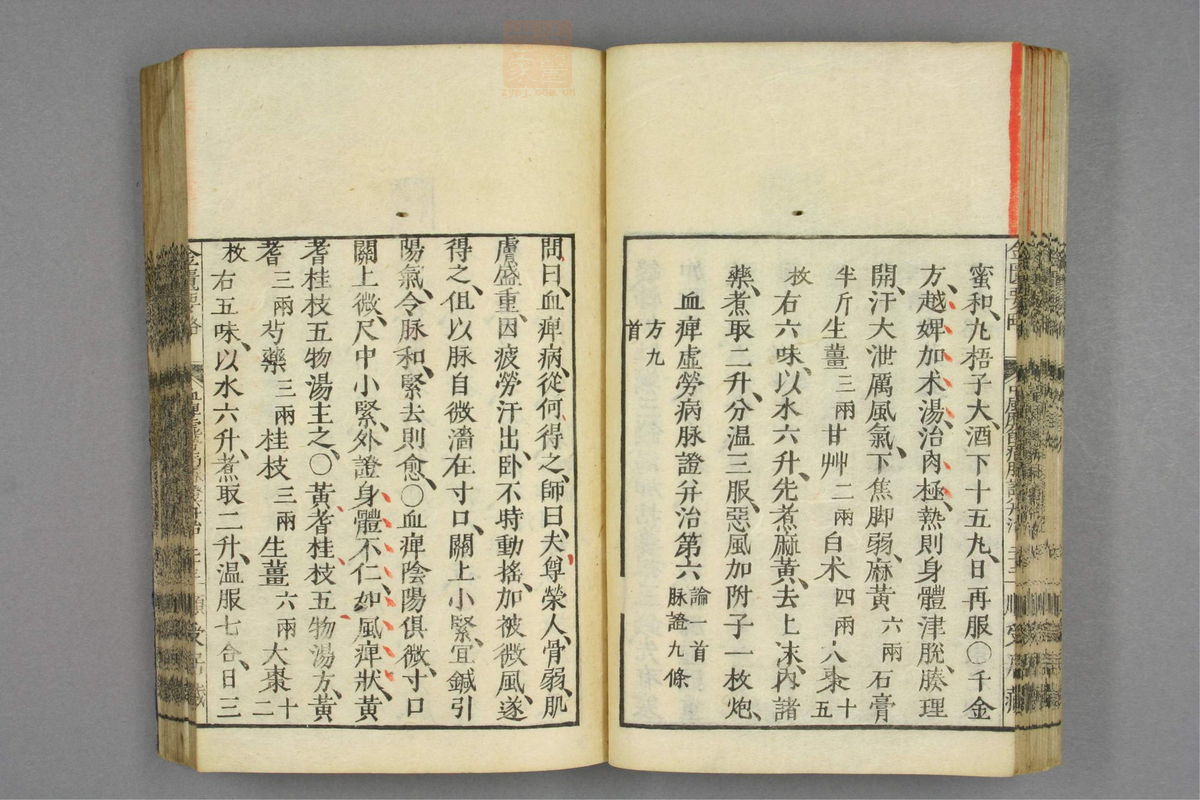 蜜和丸梧子大酒下十五丸日再服〇千金
方越婢加术湯治肉極熱則身體津脫腠理
開汗大泄厲風氣下焦脚弱麻黃六兩石膏
半斤生薑三兩甘艸二兩白术四兩大棗十五
枚右六味以水六升先煮麻黃去上沫內諸
藥煮取二升分溫三服惡風加附子一枚炮
血痺虛勞病脉證并治第六論一首脉證九條
方九首
問曰血痺病從何得之師曰夫尊榮人骨弱肌
膚盛重因疲勞汗出臥不時動搖加被微風遂
得之但以脉自微濇在寸口關上小緊宜鍼引
陽氣令脉和緊去則愈〇血痺陰陽俱微寸口
關上微尺中小緊外證身體不仁如風痺狀黃
耆桂枝五物湯主之〇黃耆桂枝五物湯方黃
耆三兩芍藥三兩桂枝三兩生薑六兩大棗十二
枚右五味以水六升煮取二升溫服七合日三